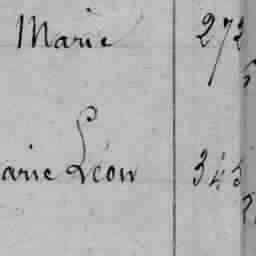 Marie 272
arie Léon 345